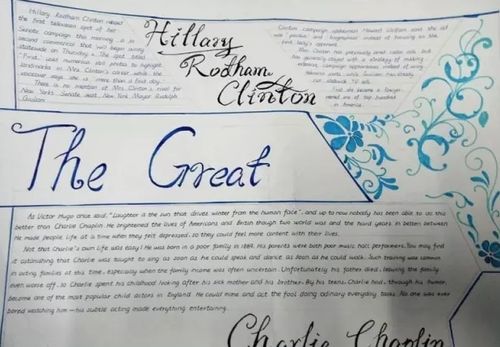 Hillary Rodham Clinton
the first television spot of her
Senate campaign this morning, a
second commercial that will begin airing
statewide on Thursday. The spot titled
"First," used numerous still photos to highlight
landmarks in Mrs. Clinton's career while the
announcer says she is "more than a first lady."
There is no mention of Mrs. Clinton's rival for
New York's Senate seat, New York Mayor Rudolph
Giuliani.
Hillary
Rodham
Clinton
Clinton campaign spokesman Howard Wolfson said the ad
was "positive" and biographical instead of focusing on the
first lady's opponent.
Mrs. Clinton has previously aired radio ads, but
has generally stayed with a strategy of making
campaign appearances instead of using
television ads
The Great
As Victor Hugo once said, "Laughter is the sun that drives winter from the human face", and up to now nobody has been able to do this
better than Charlie Chaplin. He brightened the lives of Americans and British through two world wars and the hard years in between.
He made people laugh at a time when they felt depressed, so they could feel more content with their lives.
Not that Charlie's own life was easy! He was born in a poor family in 1889. His parents were both poor music hall performers. You may find
it astonishing that Charlie was taught to sing as soon as he could speak and dance as soon as he could walk. Such training was common
in acting families at this time, especially when the family income was often uncertain. Unfortunately his father died, leaving the family
even worse off, so Charlie spent his childhood looking after his sick mother and his brother. By his teens, Charlie had, through his humor,
become one of the most popular child actors in England. He could mime and act the fool doing ordinary everyday tasks. No one was ever
bored watching him — his subtle acting made everything entertaining.
Charlie Chaplin